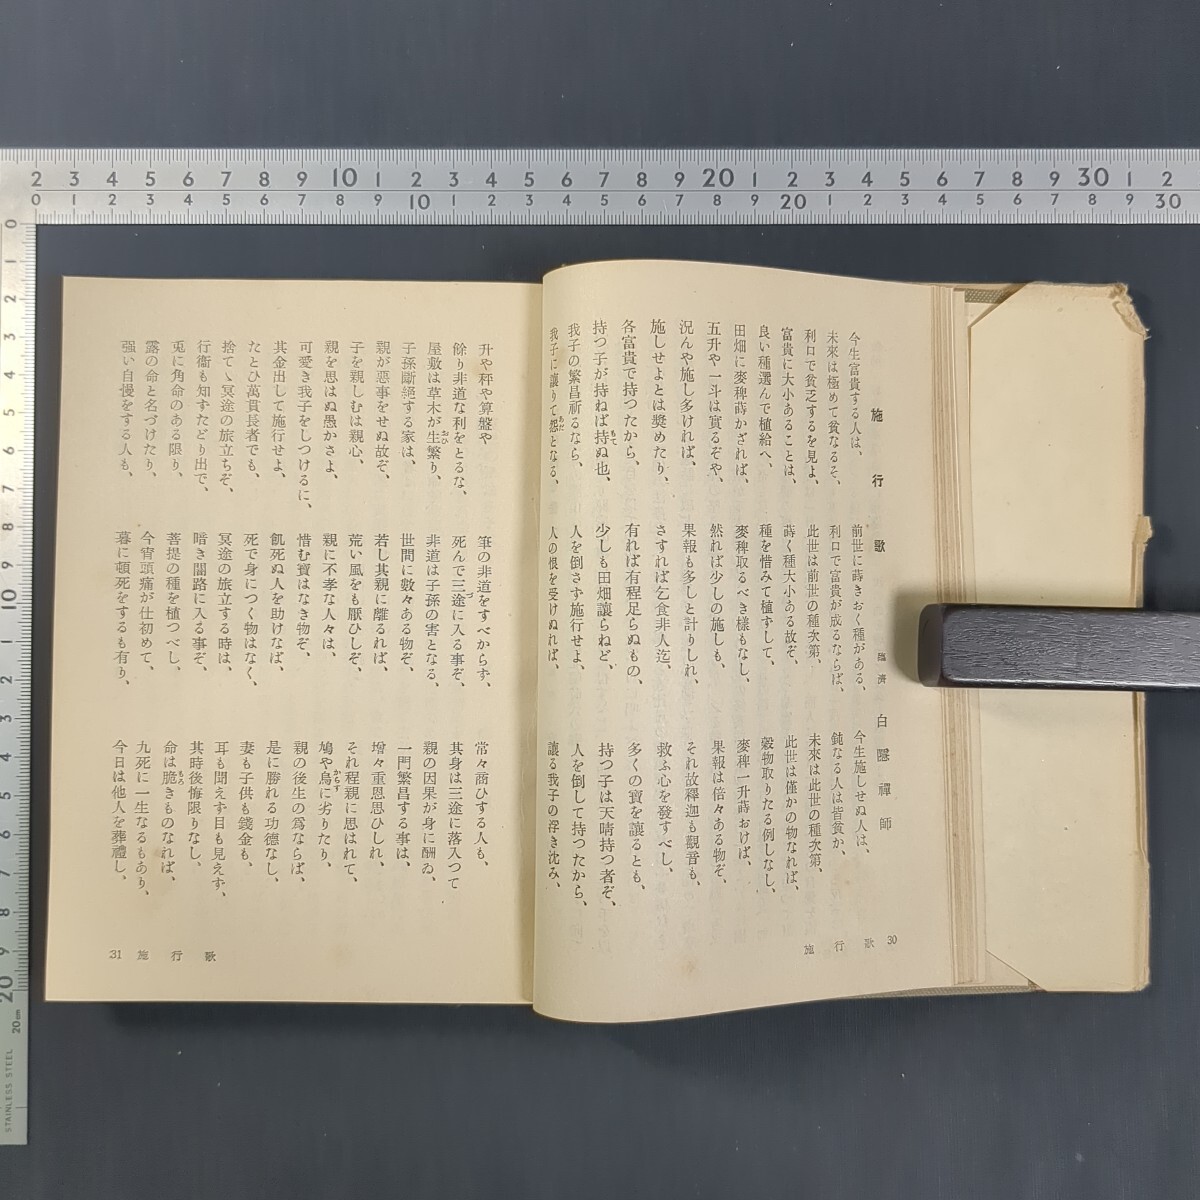 施行歌
臨濟 白隱禪師
今生富貴する人は、 前世に蒔きおく種がある、 今生施しせぬ人は、
未來は極めて貧なるぞ、 利口で富貴が成るならば、 鈍なる人は皆貧か、
利口で貧乏するを見よ、 此世は前世の種次第、 未來は此世の種次第、
富貴に大小あることは、 蒔く種大小ある故ぞ、 此世は僅かの物なれば、
良い種選んで植給へ、 種を惜みて植ずして、 穀物取りたる例しなし、
田畑に麥稗蒔かざれば、 麥稗取るべき樣もなし、 麥稗一升蒔おけば、
五升や一斗は實るぞや、 然れば少しの施しも、 果報は倍々ある物ぞ、
況んや施し多ければ、 果報も多しと計りしれ、 それ故釋迦も觀音も、
施しせよとは奬めたり、 さすれば乞食非人迄、 救ふ心を發すべし、
各富貴で持つたから、 有れば有程足らぬもの、 多くの寶を讓るとも、
持つ子が持ねば持ぬ也、 少しも田畑讓らねど、 持つ子は天晴持つ者ぞ、
我子の繁昌祈るなら、 人を倒さず施行せよ、 人を倒して持つたから、
我子に讓りて怨となる、 人の恨を受けぬれば、 讓る我子の浮き沈み、
施行歌 30
升や秤や算盤や 筆の非道をすべからず、 常々商ひする人も、
餘り非道な利をとるな、 死んで三途に入る事ぞ、 其身は三途に落入つて
屋敷は草木が生繁り、 非道は子孫の害となる、 親の因果が身に酬ゐ、
子孫斷絕する家は、 世間に數々ある物ぞ、 一門繁昌する事は、
親が惡事をせぬ故ぞ、 若し其親に離るれば、 增々重恩思ひしれ、
子を親しむは親心、 荒い風をも厭ひしぞ、 それ程親に思はれて、
親を思はぬ愚かさよ、 親に不孝な人々は、 鳩や烏に劣りたり、
可愛き我子をしつけるに、 惜む寶はなき物ぞ、 親の後生の爲ならば、
其金出して施行せよ、 飢死ぬ人を助けなば、 是に勝れる功德なし、
たとひ萬貫長者でも、 死で身につく物はなく、 妻も子供も錢金も、
捨てゝ冥途の旅立ちぞ、 冥途の旅立する時は、 耳も聞えず目も見えず、
行衞も知ずたどり出で、 暗き闇路に入る事ぞ、 其時後悔限りなし、
兎に角命のある限り、 菩提の種を植つべし、 命は脆きものなれば、
露の命と名づけたり、 今宵頭痛が仕初めて、 九死に一生なるもあり、
强い自慢をする人も、 暮に頓死をするも有り、 今日は他人を葬禮し、
31 施行歌
2 3 4 5 6 7 8 9 10 1 2 3 4 5 6 7 8 9 20 1 2 3 4 5 6 7 8 9 30 1 2
STAINLESS STEEL
20cm